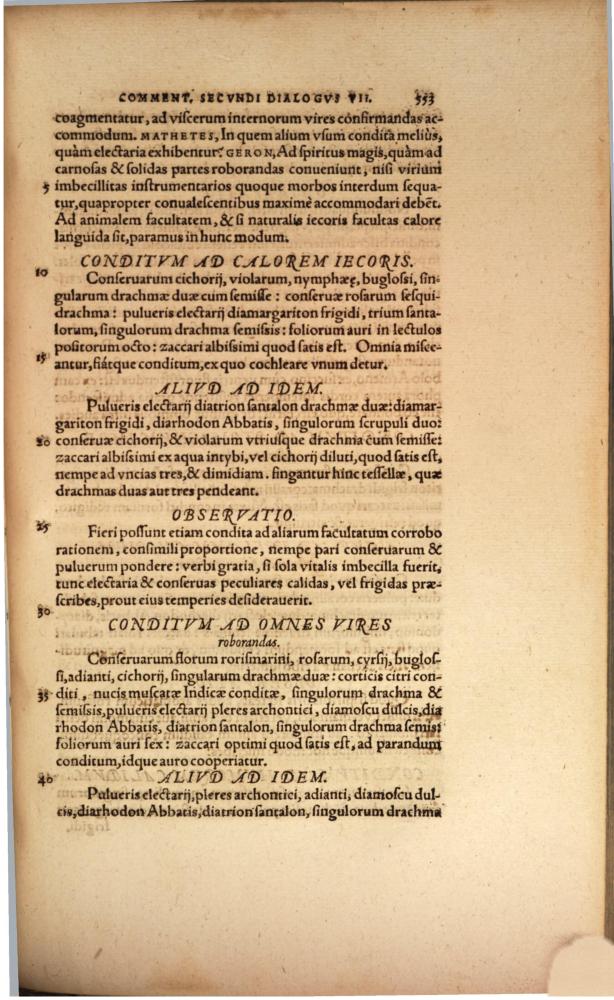 COMMENT. SECVNDI DIALOGVS VII. 553
coagmentatur, ad viſcerum internorum vires cōfirmandas ac-
commodum. MATHETES, In quem alium vſum condita meliùs,
quàm electaria exhibentur? GERON, Ad ſpiritus magis, quàm ad
carnoſas & ſolidas partes roborandas conueniunt, niſi virium
5 imbecillitas inſtrumentarios quoque morbos interdum ſequa-
tur, quapropter conualeſcentibus maximè accommodari debēt.
Ad animalem facultatem, & ſi naturalis iecoris facultas calore
languida ſit, paramus in hunc modum.
CONDITVM AD CALOREM IECORIS.
10
Conſeruarum cichorij, violarum, nymphæę, bugloſſi, ſin-
gularum drachmæ duæ cum ſemiſſe : conſeruæ roſarum ſeſqui-
drachma : pulueris electarij diamargariton frigidi, trium ſanta-
lorum, ſingulorum drachma ſemiſsis : foliorum auri in lectulos
poſitorum octo : zaccari albiſsimi quod ſatis eſt. Omnia miſce-
15
antur, fiátque conditum, ex quo cochleare vnum detur.
ALIVD AD IDEM.
Pulueris electarij diatrion ſantalon drachmæ duæ: diamar-
gariton frigidi, diarhodon Abbatis, ſingulorum ſcrupuli duo:
20 conſeruæ cichorij, & violarum vtriuſque drachma cùm ſemiſſe:
zaccari albiſsimi ex aqua intybi, vel cichorij diluti, quod ſatis eſt,
nempe ad vncias tres, & dimidiam. fingantur hinc teſſellæ, quæ
drachmas duas aut tres pendeant.
OBSERVATIO.
25
Fieri poſſunt etiam condita ad aliarum facultatum corrobo
rationem, conſimili proportione, nempe pari conſeruarum &
puluerum pondere : verbi gratia, ſi ſola vitalis imbecilla fuerit,
tunc electaria & conſeruas peculiares calidas, vel frigidas præ-
ſcribes, prout eius temperies deſiderauerit.
30
CONDITVM AD OMNES VIRES
roborandas.
Conſeruarum florum roriſmarini, roſarum, cyrſij, bugloſ-
ſi, adianti, cichorij, ſingularum drachmæ duæ: corticis citri con-
35 diti, nucis muſcatæ Indicæ conditæ, ſingulorum drachma &
ſemiſsis, pulueris electarij pleres archontici, diamoſcu dulcis, dia
rhodon Abbatis, diatrion ſantalon, ſingulorum drachma ſemis:
foliorum auri ſex : zaccari optimi quod ſatis eſt, ad parandum
conditum, idque auro cooperiatur.
40 ALIVD AD IDEM.
Pulueris electarij, pleres archontici, adianti, diamoſcu dul-
cis, diarhodon Abbatis, diatrion ſantalon, ſingulorum drachma